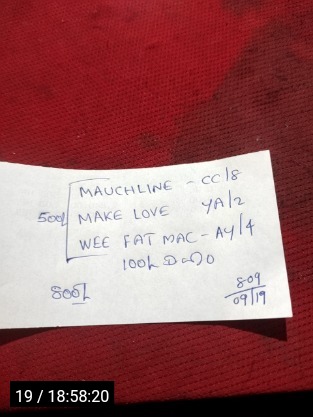 MAUCHLINE - CC/8
500/ MAKE LOVE YA/2
WEE FAT MAC - AY/4
100/
800/
8-09
09/19
19 / 18:58:20